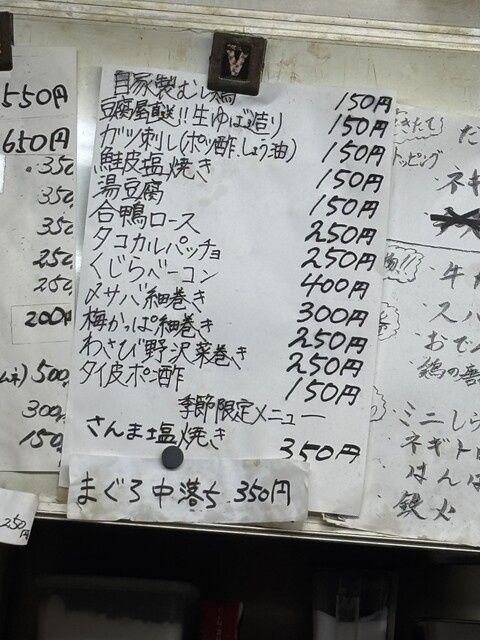 550円
650円
350
350
350
250
250
200円
500
300
150
250円
自家製むし鶏 150円
豆腐屋直送!!生ゆば造り 150円
ガツ刺し(ポン酢、しょう油) 150円
鮭皮塩焼き 150円
湯豆腐 150円
合鴨ロース 250円
タコカルパッチョ 250円
くじらベーコン 400円
〆サバ細巻き 300円
梅かっぱ細巻き 250円
わさび野沢菜巻き 250円
タイ皮ポン酢 150円
季節限定メニュー
さんま塩焼き 350円
まぐろ中落ち 350円
きたて!
た
トッピング
・ネギ
物!!
・牛
・ス
・おで
・鶏の
・ミニしら
・ネギト
・はん
・鉄火